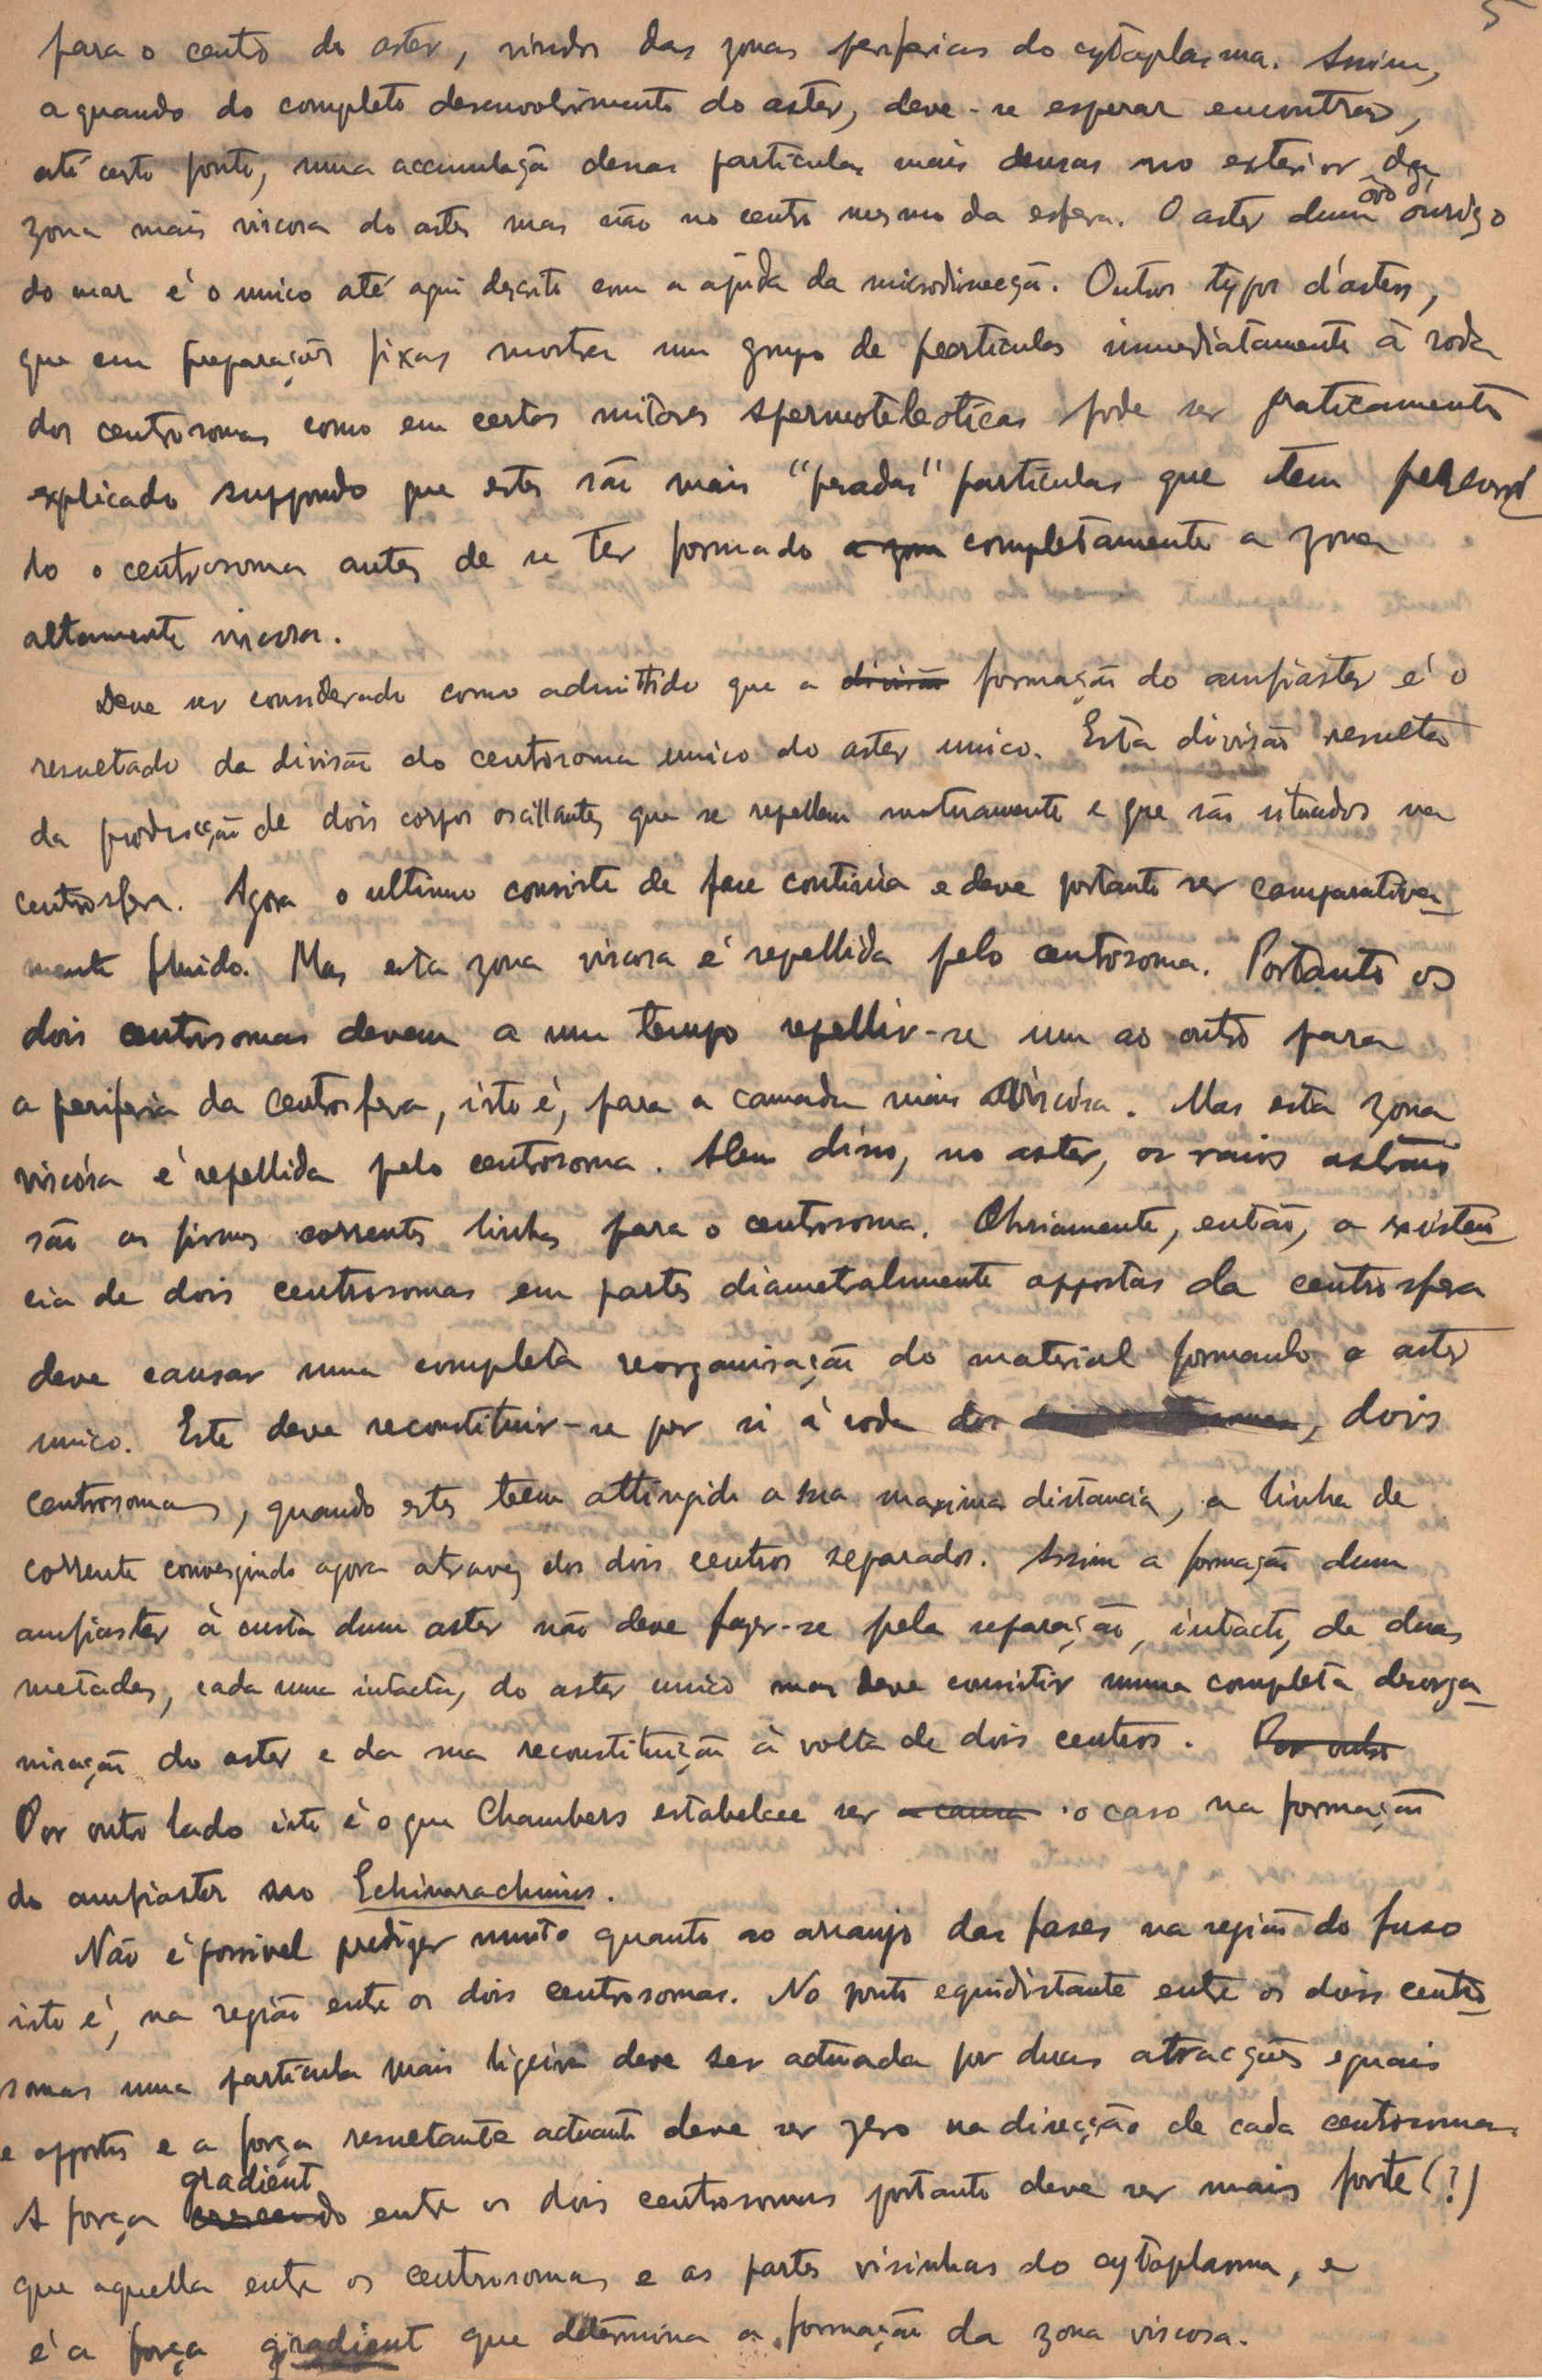 5
para o centro do aster, vindos das zonas perifericas do cytoplasma. Assim,
a quando do completo desenvolvimento do aster, deve-se esperar encontrar,
até certo ponto, uma accumulação dessas particulas mais densas no exterior da
zona mais viscosa do aster mas não no centro mesmo da esfera. O aster dum ovo d' ouriço
do mar é o unico até aqui descrito com a ajuda da microdissecção. Outros typos d'asters,
que em preparações fixas mostra um grupo de particulas immediatamente à roda
dos centrosomas como em certas mitoses pode ser praticamente
explicado suppondo que estes são mais "pesadas" particulas que tem
do o centrosoma antes de se ter formado a zona completamente a zona
altamente viscosa.
Deve ser considerado como admittido que a divisão formação do amfiaster é o
resultado da divisão do centrosoma unico do aster unico. Esta divisão resulta
da producção de dois corpos oscillantes que se repellem mutuamente e que são situados na
centrosfera. Agora o ultimo consiste de fase continua e deve portanto ser comparativa-
mente fluido. Mas esta zona viscosa é repellida pelo centrosoma. Portanto os
dois centrosomas devem a um tempo repellir-se um ao outro para
a periferia da centrosfera, isto é, para a camada mais viscósa. Mas esta zona
viscósa é repellida pelo centrosoma. Alem disso, no aster, os raios astraes
são as firmes correntes linhas para o centrosoma. Obviamente, então, a existen-
cia de dois centrosomas em partes diametralmente oppostas da centrosfera
deve causar uma completa reorganisação do material formando o aster
unico. Este deve reconstituir-se por si à roda dos , dois
centrosomas, quando estes teem attingido a sua maxima distancia, a linha de
corrente convergindo agora atravez dos dois centros separados. Assim a formação dum
amfiaster à custa dum aster não deve fazer-se pela separação, intacta, de duas
metades, cada uma intacta, do aster unico mas deve consistir numa completa desorga-
nisação do aster e da sua reconstituição à volta de dois centros. Por outro
Por outro lado isto é o que Chambers estabelece ser a causa o caso na formação
do amfiaster no Echinarachnius.
Não é possivel predizer muito quanto ao arranjo das fases na região do fuso
isto é, na região entre os dois centrosomas. No ponto equidistante entre os dois centro-
somas uma particula mais ligeira deve ser actuada por duas atracções eguais
e oppostas e a força resultante actuante deve ser zero na direcção de cada centrosoma.
A força crescendo gradient entre os dois centrosomas portanto deve ser mais forte (?)
que aquella entre os centrosomas e as partes visinhas do cytoplasma, e
é a força gradient que determina a formação da zona viscosa.